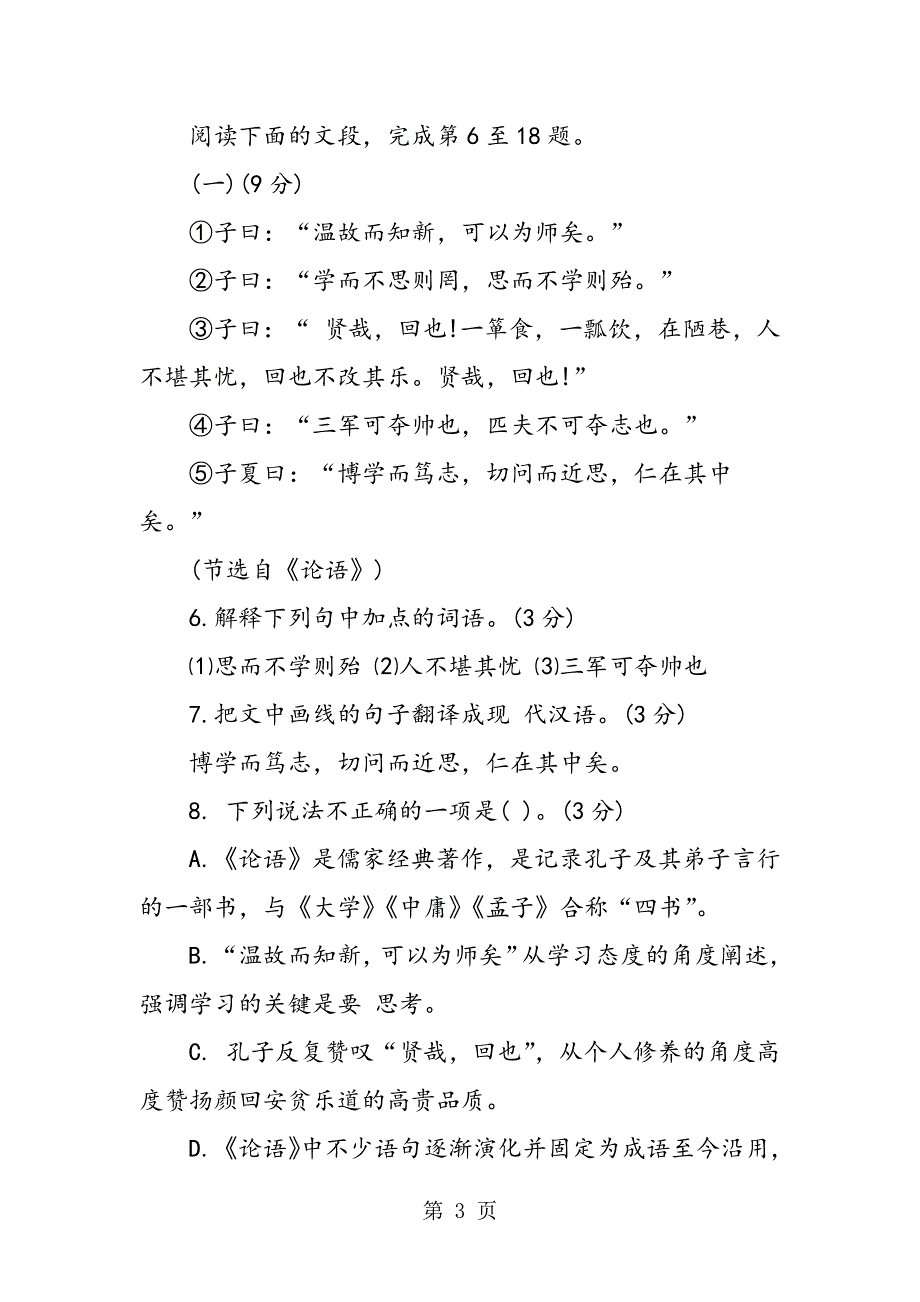 阅读下面的文段，完成第6至18题。
(一)(9分)
①子曰：“温故而知新，可以为师矣。”
②子曰：“学而不思则罔，思而不学则殆。”
③子曰：“ 贤哉，回也!一箪食，一瓢饮，在陋巷，人
不堪其忧，回也不改其乐。贤哉，回也!”
④子曰：“三军可夺帅也，匹夫不可夺志也。”
⑤子夏曰：“博学而笃志，切问而近思，仁在其中
矣。”
(节选自《论语》)
6.解释下列句中加点的词语。(3分)
⑴思而不学则殆 ⑵人不堪其忧 ⑶三军可夺帅也
7.把文中画线的句子翻译成现 代汉语。(3分)
博学而笃志，切问而近思，仁在其中矣。
8. 下列说法不正确的一项是( )。(3分)
A.《论语》是儒家经典著作，是记录孔子及其弟子言行
的一部书，与《大学》《中庸》《孟子》合称“四书”。
B.“温故而知新，可以为师矣”从学习态度的角度阐述，
强调学习的关键是要 思考。
C. 孔子反复赞叹“贤哉，回也”，从个人修养的角度高
度赞扬颜回安贫乐道的高贵品质。
D.《论语》中不少语句逐渐演化并固定为成语至今沿用，
第 3 页